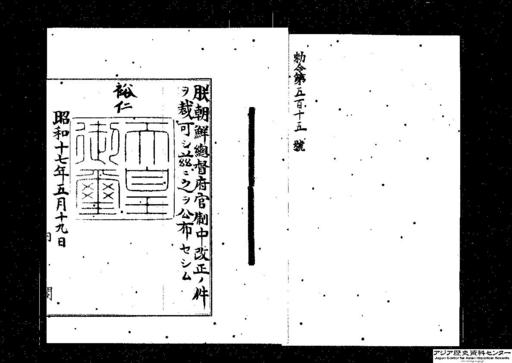 勅令第五百十五號
朕朝鮮總督府官制中改正ノ件
ヲ裁可シ茲ニ之ヲ公布セシム
裕仁
天皇
御璽
昭和十七年五月十九日
内閣
アジア歴史資料センター
Japan Center for Asian Historical Records